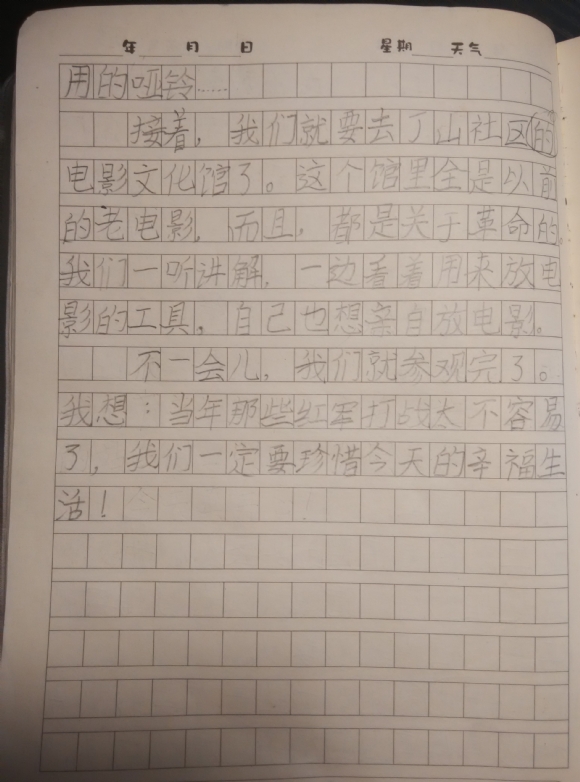 年 月 日 星期 天气
用的哑铃……
接着，我们就要去丁山社区的
电影文化馆了。这个馆里全是以前
的老电影，而且，都是关于革命的。
我们一听讲解，一边看着用来放电
影的工具，自己也想亲自放电影。
不一会儿，我们就参观完了。
我想：当年那些红军打战太不容易
了，我们一定要珍惜今天的辛福生
活！